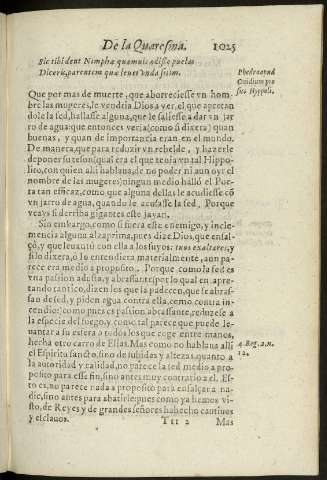 De la Quaresma. 1025
Sic tibi dent Nimphæ quamuis odisse puellas
Diceris, parentem quæ leuet vnda sitim.
Phedra apud
Ouidium pro
suo Hyppoli.
Que por mas de muerte, que aborreciesse vn hom
bre las mugeres, le vendria Dios a ver, el que apretan
dole la sed, hallasse alguna, que le saliesse a dar vn jar
ro de agua: que entonces veria (como si dixera) quan
buenas, y quan de importancia eran en el mundo.
De manera, que para reduzir vn rebelde, y hazerle
deponer su teson (qual era el que tenia vn tal Hippo-
lito, con quien alli hablaua, de no poder ni aun oyr el
nombre de las mugeres) ningun medio halló el Poe
ta tan eficaz, como que alguna dellas le acudiesse cõ
vn jarro de agua, quando le acusasse la sed. Porque
veays si derriba gigantes este jayan.
Sin embargo, como si fuera este enemigo, y incle
mencia alguna alzaprima, pues dize Dios, que ensal
çó, y que leuantó con ella a los suyos: tuos exaltares, y
si lo dixera, ò lo entendiera materialmente, aun pa
rece era medio a proposito. Porque como la sed es
vna passion adusta, y abrassante (por lo qual en apre-
tando tantico, dizen los que la padecen, que se abras-
san de sed, y piden agua contra ella, como contra in
cendio: ) como pues es passion abrassante, reduzese a
la especie del fuego, y como tal parece que puede le-
uantar a su esfera a todos los que coge entre manos,
hecha otro carro de Elias. Mas como no hablaua alli
4. Reg. 2. n.
12.
el Espiritu sancto, sino de subidas y altezas, quanto a
la autoridad y calidad, no parece la sed medio a pro-
posito para esse fin, sino antes muy contrario a el. Es
to es, no parece nada a proposito para ensalçar a na-
die, sino antes para abatirle; pues como ya hemos vi-
sto, de Reyes y de grandes señores ha hecho cautiuos
y esclauos. Ttt 2 Mas